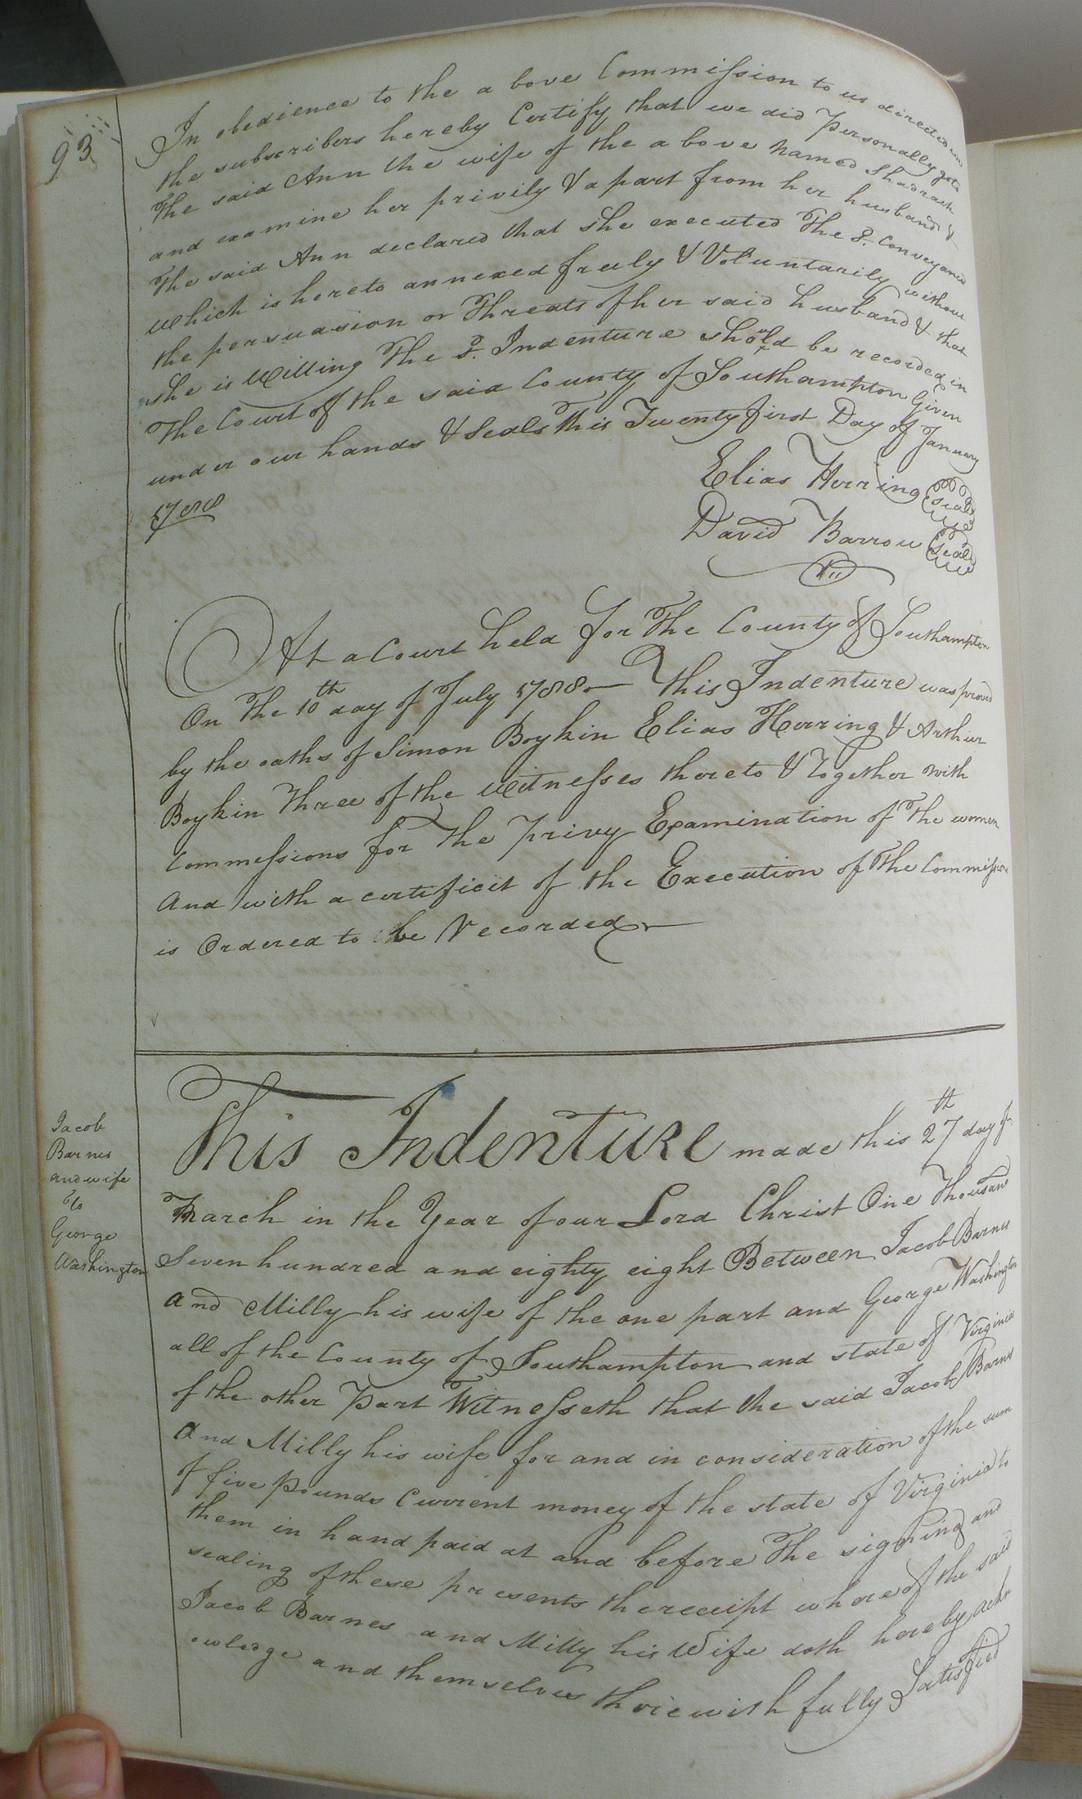 93
In obedience to the a bove Commission to us directed
the subscribers hereby Certify that we did Personally
The said Ann the wife of the a bove named Shadrach
and examine her privily & a part from her husband &
The said Ann declared that she executed The sd. Conveyance
which is hereto annexed freely & Voluntarily without
the persuasion or Threats of her said husband & that
she is Willing The sd. Indenture should be recorded in
The Court of the said County of Southampton Given
under our hands & Seals This Twenty first Day of January
1788
Elias Herring Seal
David Barrow Seal
At a Court held for The County of Southampton
On The 10th day of July 1788 This Indenture was proved
by the oaths of Simon Boykin Elias Herring & Arthur
Boykin Three of the Witnesses thereto & Together with
Commessions for The privy Examination of The women
And with a certificit of the Execution of The Commissions
is Ordered to be Recorded
Jacob
Barnes
and wife
To
George
Washington
This Indenture made this 27th day of
March in the Year of our Lord Christ One Thousand
Seven hundred and eighty eight Between Jacob Barnes
And Milly his wife of the one part and George Washington
all of the County of Southampton and state of Virginia
of the other Part Witnesseth that the said Jacob Barnes
And Milly his wife for and in consideration of the sum
of five pounds Current money of the state of Virginia to
them in hand paid at and before The signing and
sealing of these presents the receipt where of the said
Jacob Barnes and Milly his Wife doth hereby ackn
owledge and themselves therewith fully Satisfied